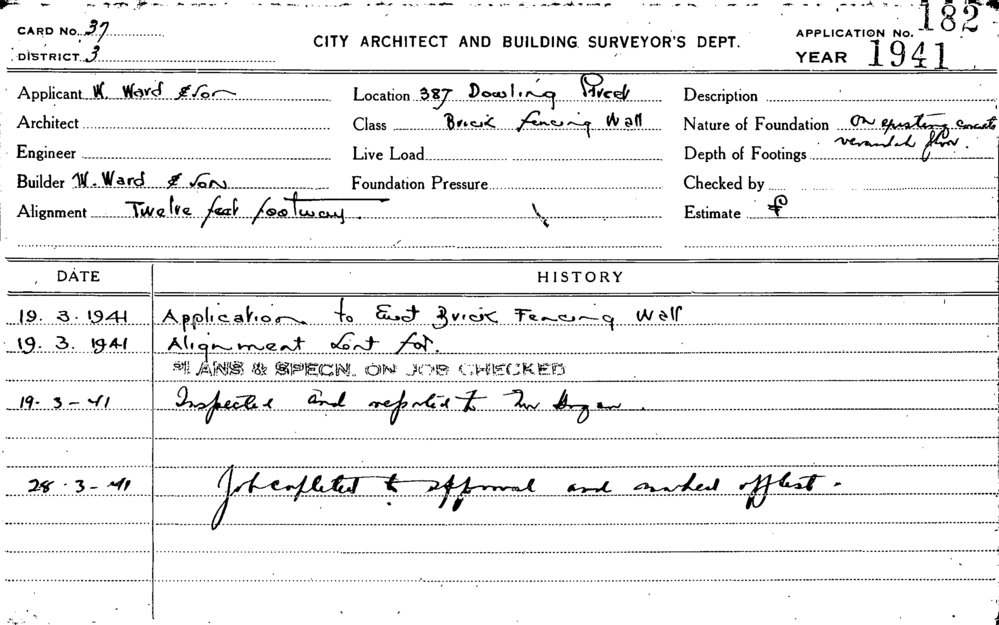 CARD No. 37
DISTRICT 3
CITY ARCHITECT AND BUILDING SURVEYOR'S DEPT.
APPLICATION No. 182
YEAR 1941
Applicant W. Ward & Son
Location 387 Dowling Street
Description
Architect
Class Brick Fencing Wall
Nature of Foundation On existing concrete
verandah floor.
Engineer
Live Load
Depth of Footings
Builder W. Ward & Son
Foundation Pressure
Checked by
Alignment Twelve feet footway.
Estimate £
DATE
HISTORY
19. 3. 1941 Application to Erect Brick Fencing Wall
19. 3. 1941 Alignment sent for.
PLANS & SPECN. ON JOB CHECKED
19-3-41 Inspected and reported to Mr
28-3-41 Job completed to approval and marked off list.